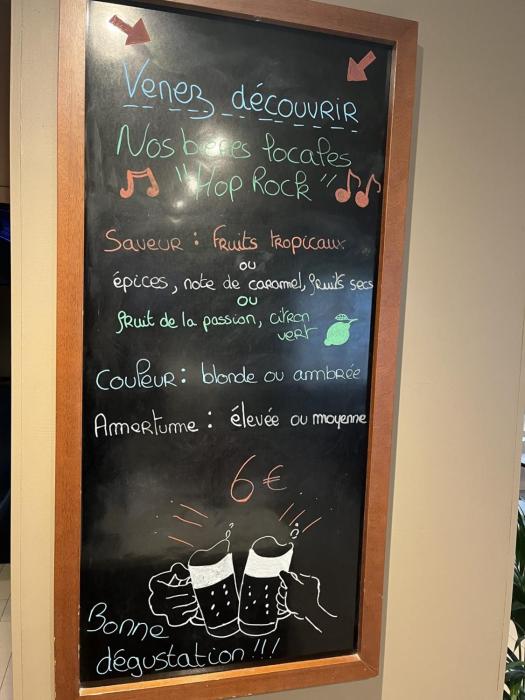 Venez découvrir
Nos bières locales
"Hop Rock"
Saveur : fruits tropicaux
ou
épices, note de caramel, fruits secs
ou
fruit de la passion, citron
vert
Couleur : blonde ou ambrée
Amertume : élevée ou moyenne
6€
Bonne
dégustation !!!